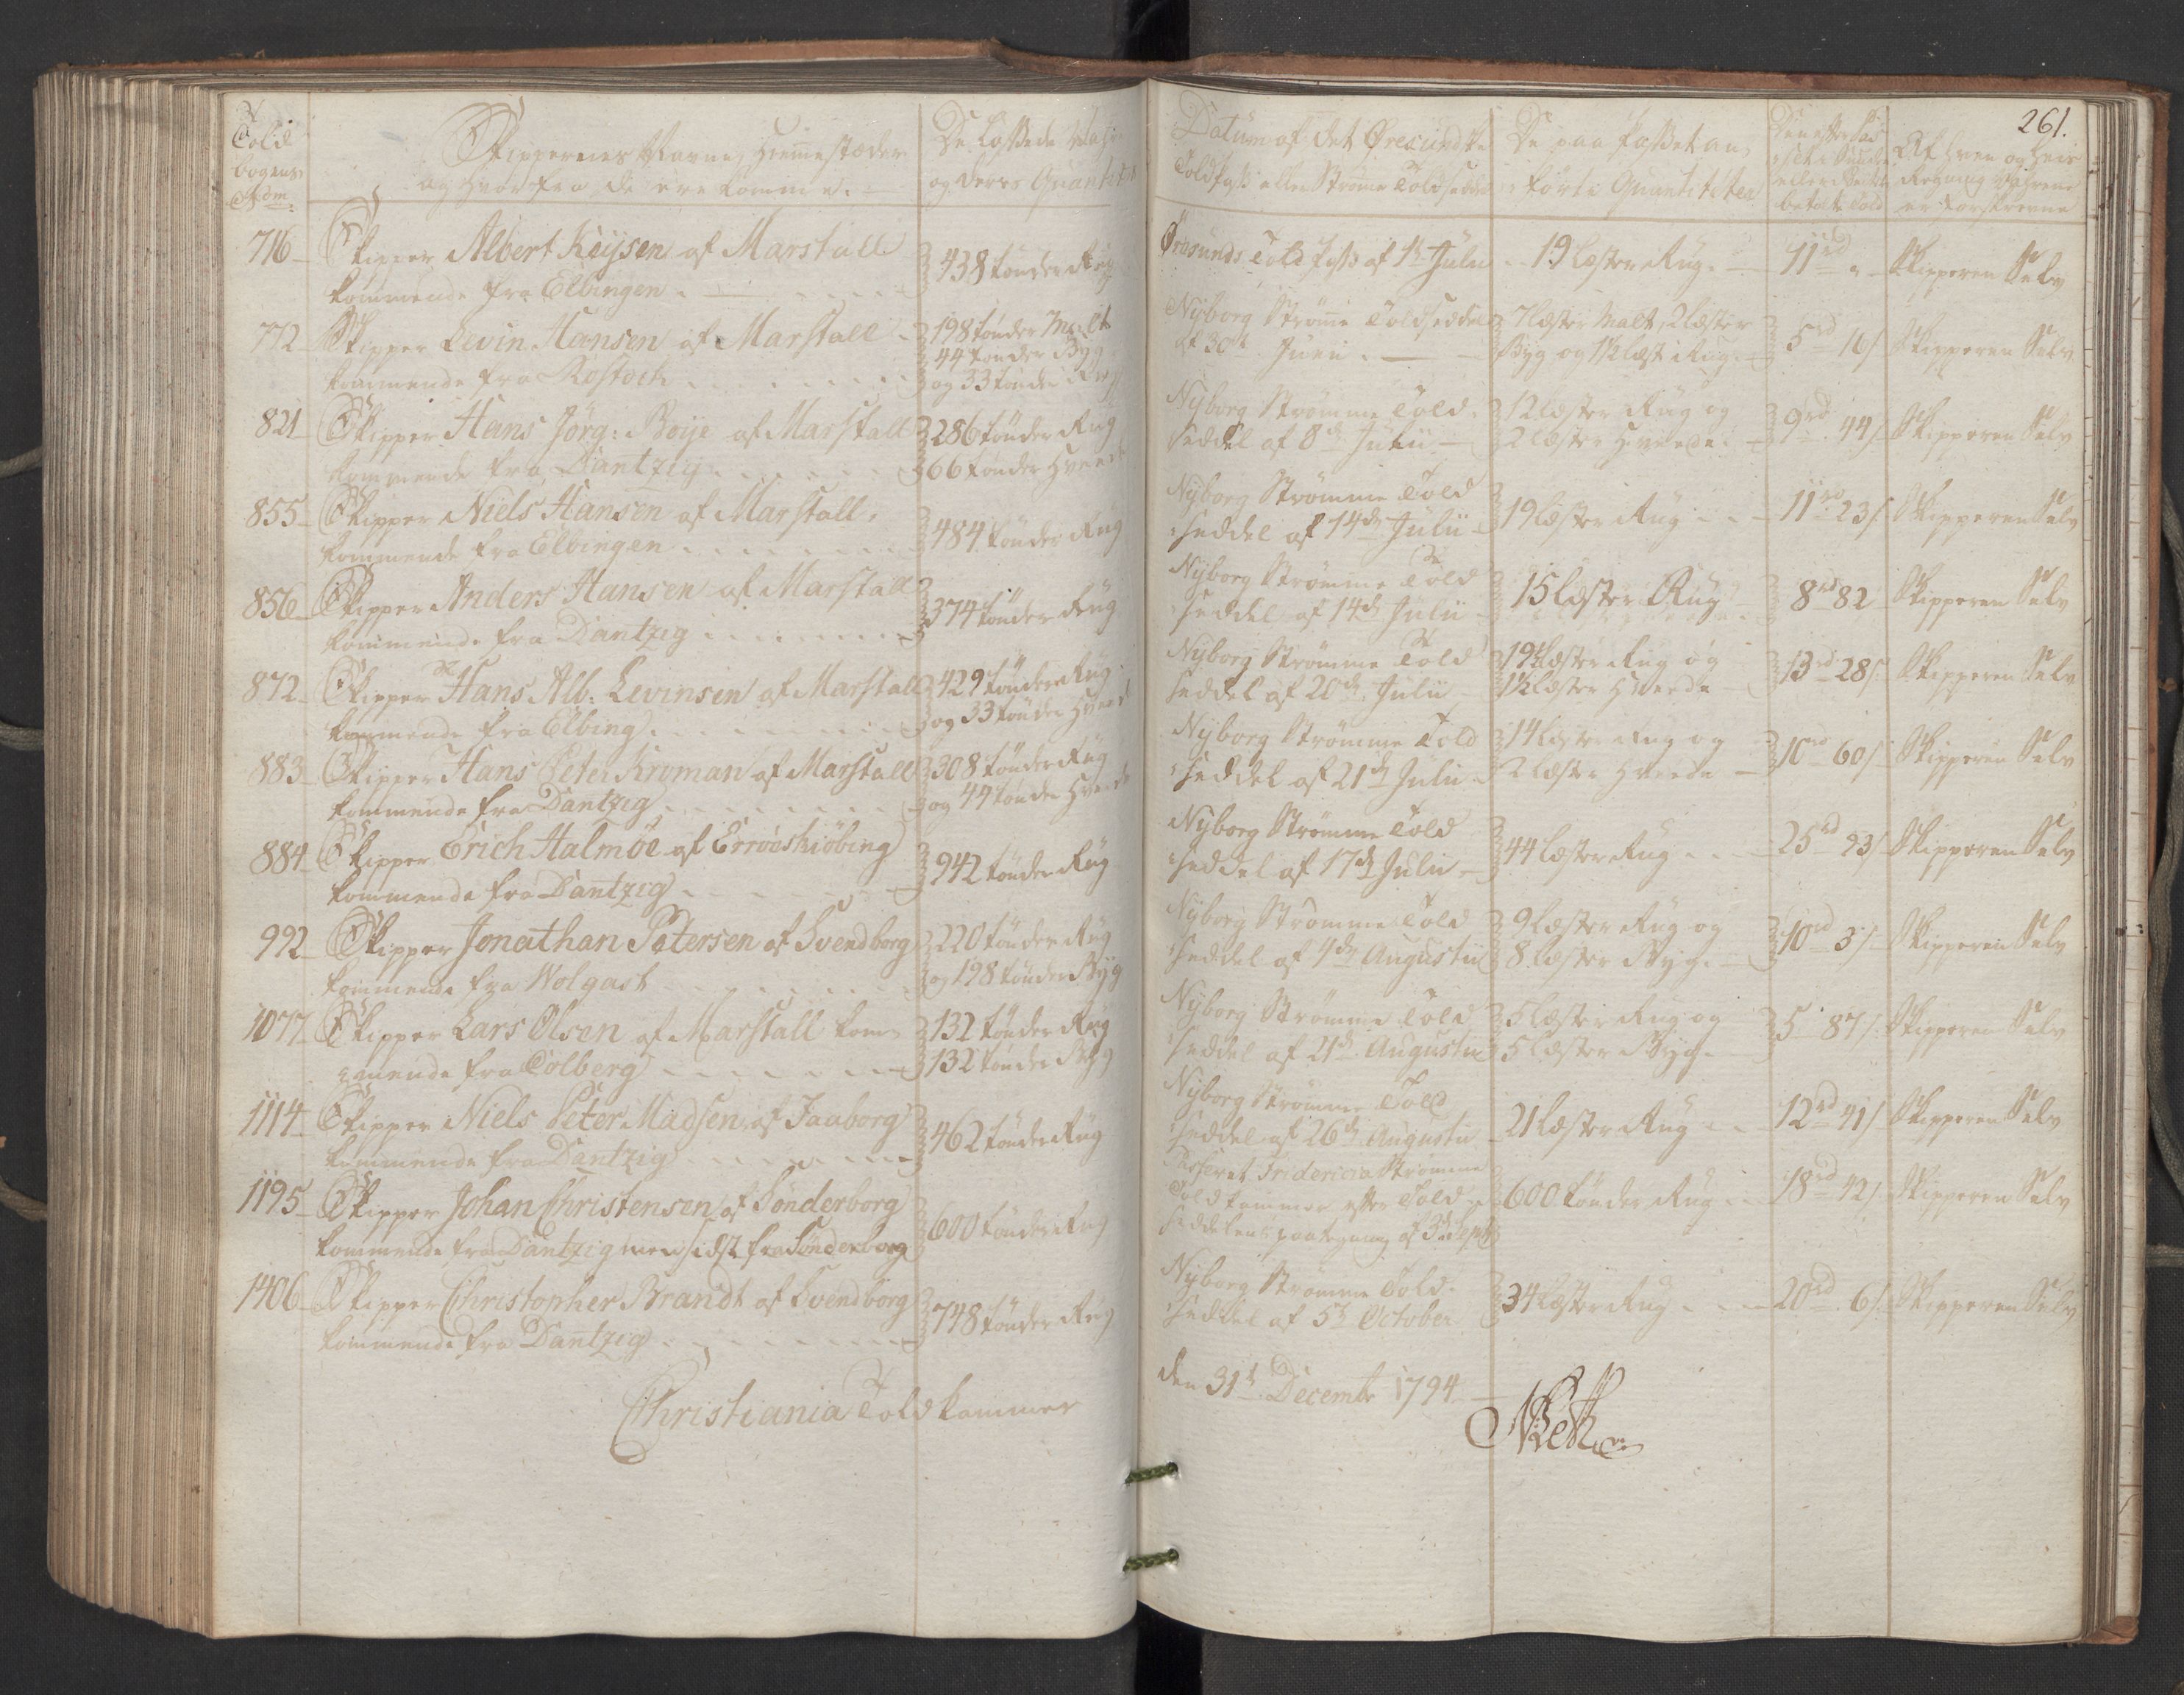 Told
bogens
No:
Skippernes Navne, Hiemmestæder
og hvorfra de ere komne.
De Lossede Vahre
og deres Quantitet
716 Skipper Albert Keysen af Marstall
kommende fra Elbingen
438 tønder Rug
772 Skipper Levin Hansen af Marstall
kommende fra Rostoch
198 tønder Malt
44 tønder Byg
og 33 tønder Rug
821 Skipper Hans Jörg: Boye af Marstall
kommende fra Dantzig
286 tønder Rug
66 tønder Hvede
855 Skipper Niels Hansen af Marstall,
kommende fra Elbingen
484 tønder Rug
856 Skipper Anders Hansen af Marstall
kommende fra Dantzig
374 tønder Rug
872 Skipper Hans Alb: Levinsen af Marstall
kommende fra Elbing
429 tønder Rug
og 33 tønder Hvede
883 Skipper Hans Peter Kroman af Marstall
kommende fra Dantzig
308 tønder Rug
og 44 tønder Hvede
884 Skipper Erich Halmöe af Erröeskiöbing
kommende fra Dantzig
942 tønder Rug
992 Skipper Jonathan Petersen af Svendborg
kommende fra Wolgast
220 tønder Rug
og 198 tønder Byg
1077 Skipper Lars Olsen af Marstall kom-
mende fra Colberg
132 tønder Rug
132 tønder Byg
1114 Skipper Niels Peter Madsen af Faaborg
kommende fra Dantzig
462 tønder Rug
1195 Skipper Johan Christensen af Sønderborg
kommende fra Dantzig men sidst fra Sønderborg
600 tønder Rug
1406 Skipper Christopher Brandt af Svendborg
kommende fra Dantzig
748 tønder Rug
Christiania Toldkammer
261.
Datum af det Øresundske
Toldpass eller Strømme Toldseddel
De paa Passet an-
førte Quantiteter
betalte Told
Af hvem og hvis
Regning Vahrene
er forskrevne
Øresunds Told Pass af 1te Julii
19 Læster Rug
11 rd "
Skipperen Selv
Nyborg Strømme Toldseddel
af 30te Junii
7 Læster Malt, 2 Læster
Byg og 1½ Læst Rug
5 rd 16 s
Skipperen Selv
Nyborg Strømme Told-
seddel af 8de Julii
12 Læster Rug og
2 Læster Hvede
9 rd 44 s
Skipperen Selv
Nyborg Strømme Told
seddel af 14de Julii
19 Læster Rug
11 rd 23 s
Skipperen Selv
Nyborg Strømme Told
seddel af 14de Julii
15 Læster Rug
8 rd 82
Skipperen Selv
Nyborg Strømme Told
seddel af 20de Julii
19½ Læster Rug og
1½ Læster Hvede
13 rd 28 s
Skipperen Selv
Nyborg Strømme Told
seddel af 21de Julii
14 Læster Rug og
2 Læster Hvede
10 rd 60 s
Skipperen Selv
Nyborg Strømme Told
seddel af 17de Julii
44 Læster Rug
25 rd 93 s
Skipperen Selv
Nyborg Strømme Told
seddel af 4de Augustii
9 Læster Rug og
8 Læster Byg
10 rd 3 s
Skipperen Selv
Nyborg Strømme Told
seddel af 21de Augustii
5 Læster Rug og
5 Læster Byg
5 87 s
Skipperen Selv
Nyborg Strømme Told
seddel af 26de Augustii
21 Læster Rug
12 rd 41 s
Skipperen Selv
Passeret Fridericia Strømme
Toldkammer efter Told-
seddelens paategning af 3de Septbr
600 tønder Rug
18 rd 42 s
Skipperen Selv
Nyborg Strømme Told-
seddel af 5te October
34 Læster Rug
20 rd 6 s
Skipperen Selv
den 31te Decembr 1794